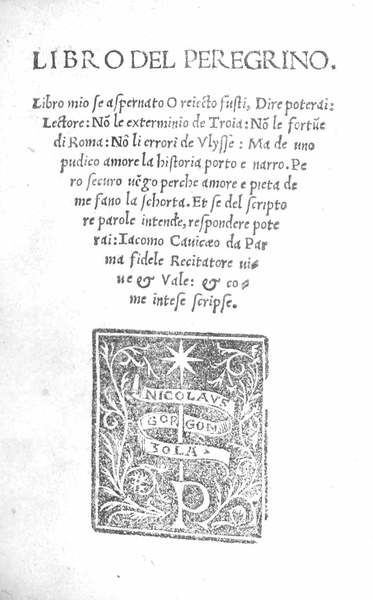 LIBRO DEL PEREGRINO.
Libro mio se aspernato O reiecto fusti, Dire poterai:
Lectore: Nõ le exterminio de Troia: Nõ le fortũe
di Roma: Nõ li errori de Vlysse: Ma de uno
pudico amore la historia porto e narro. Pe
ro securo uẽgo perche amore e pieta de
me fano la schorta. Et se del scripto
re parole intende, respondere pote
rai: Iacomo Cauicæo da Par
ma fidele Recitatore ui-
ue & Vale: & co-
me intese scripse.
NICOLAVS
GORGON
ZOLA
P